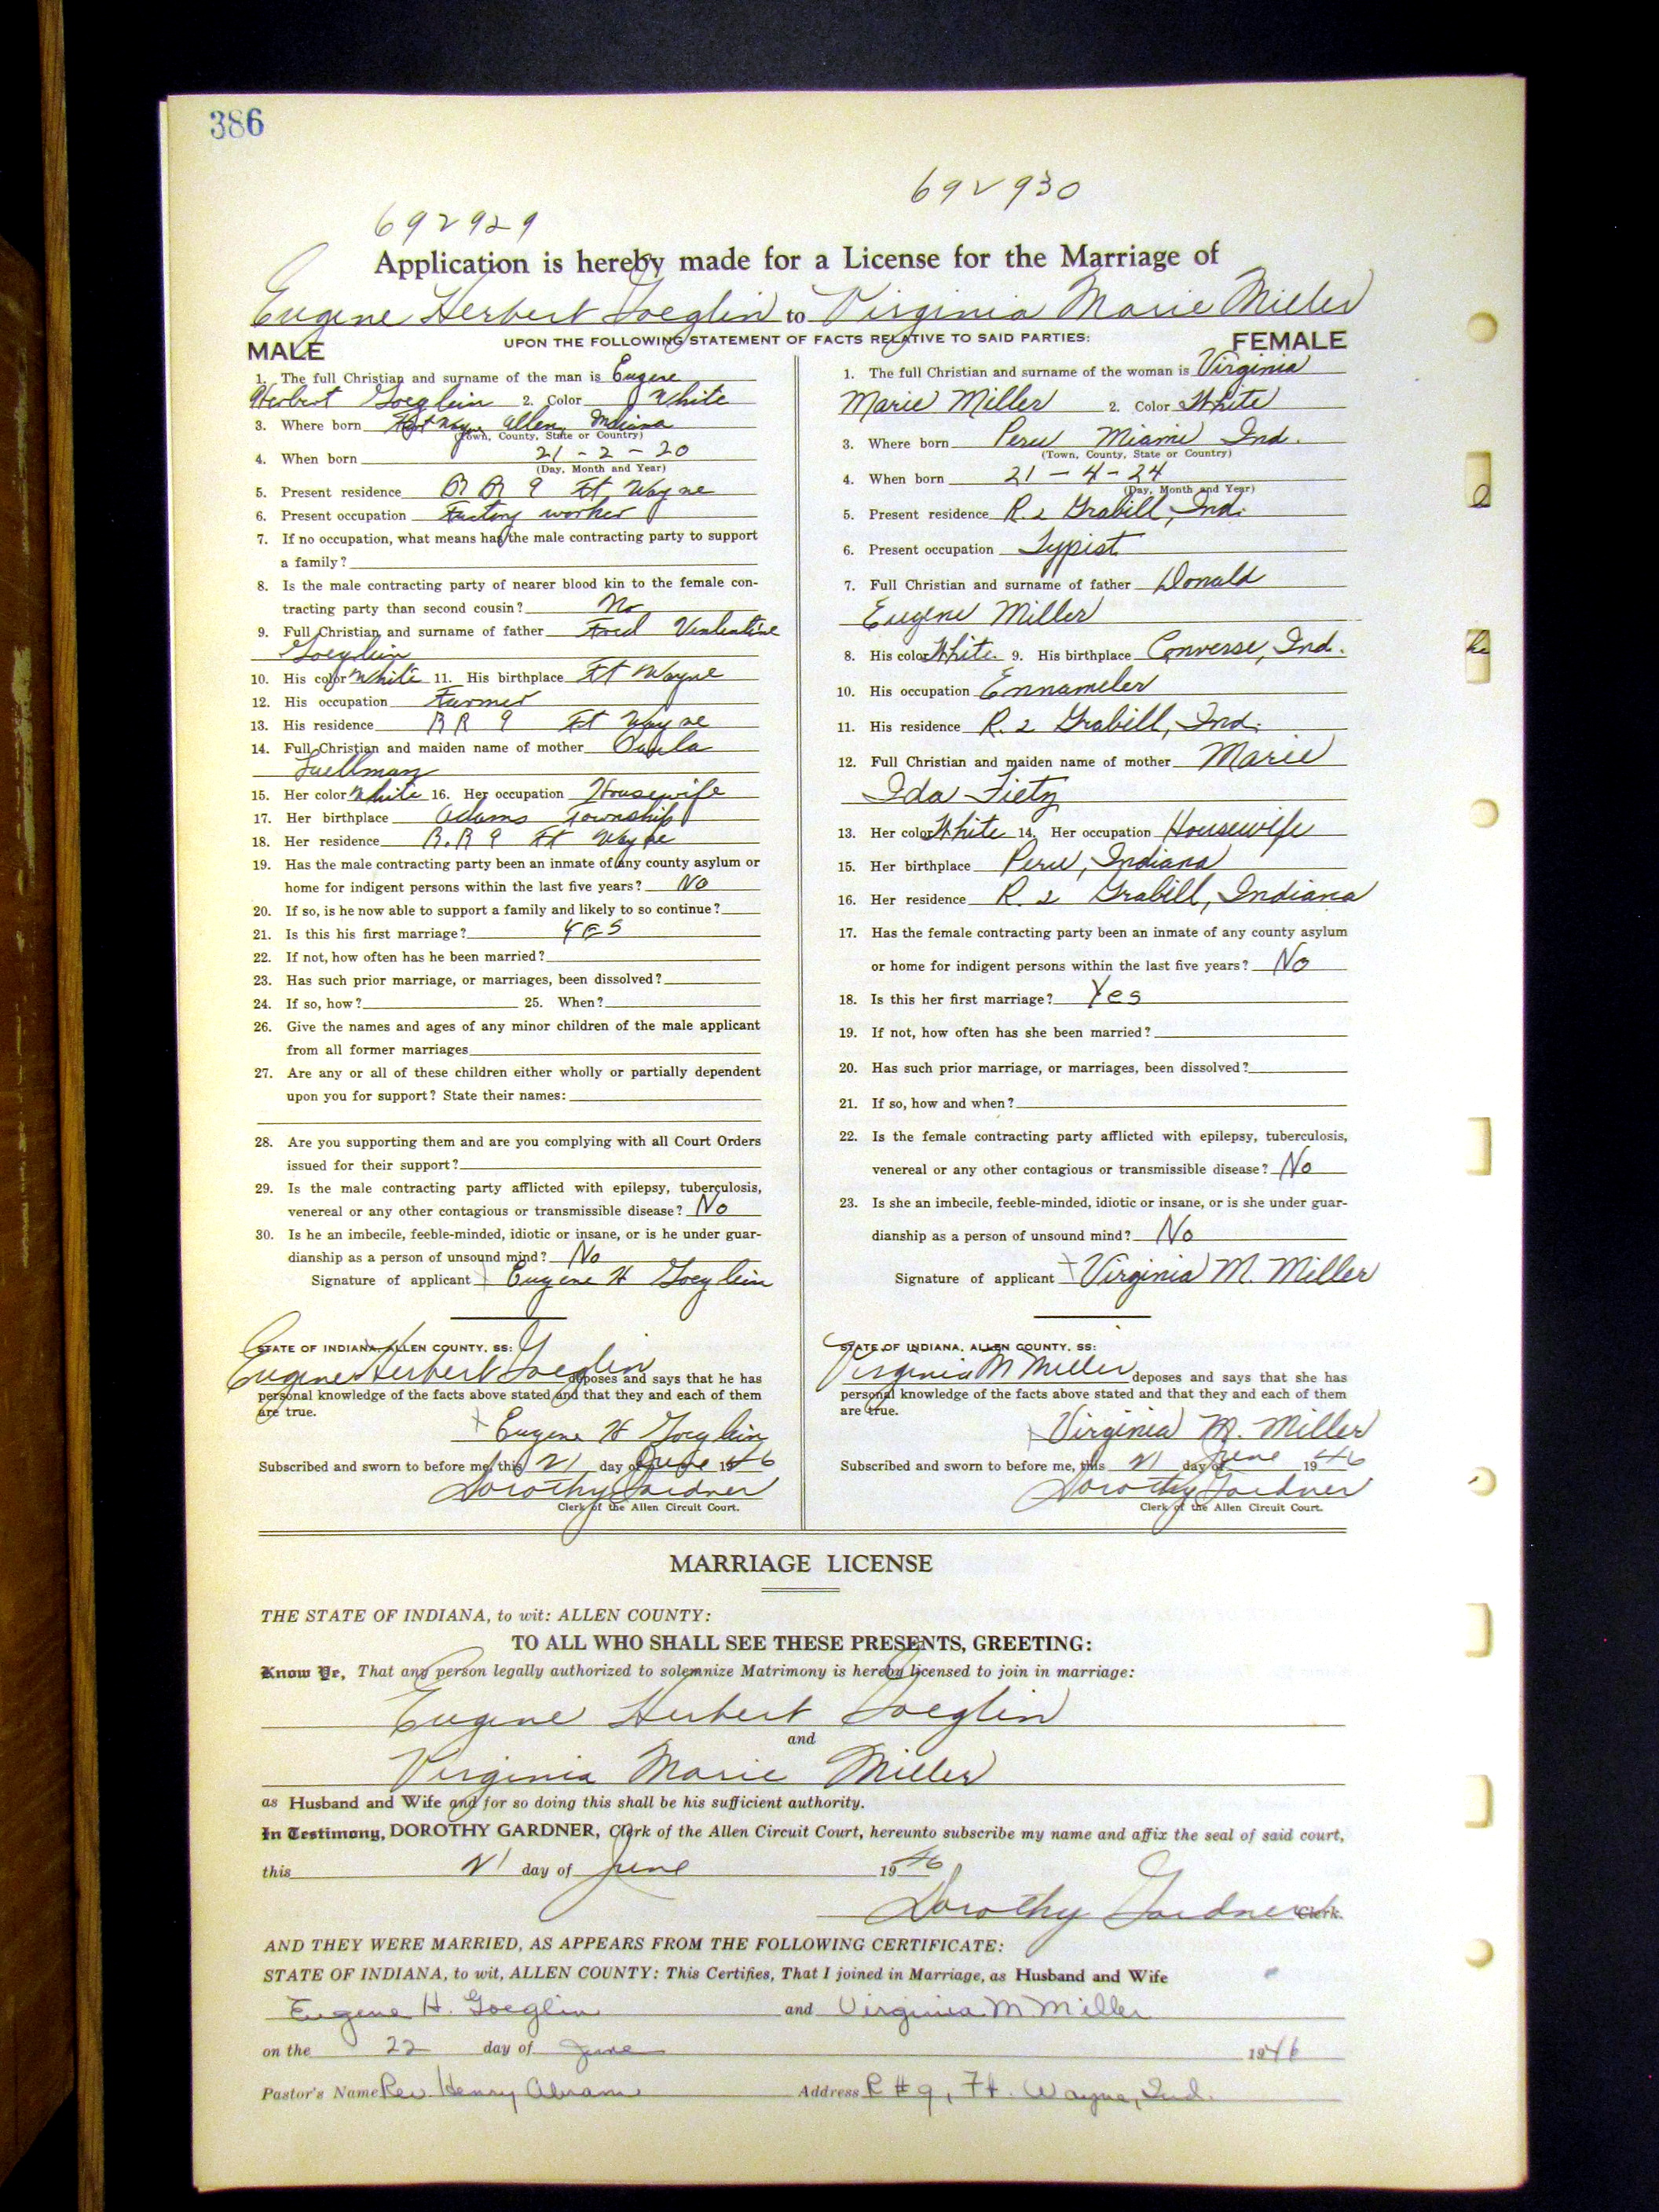 386
692930
692929
Application is hereby made for a License for the Marriage of
Eugene Herbert Goeglin to Virginia Marie Miller
UPON THE FOLLOWING STATEMENT OF FACTS RELATIVE TO SAID PARTIES:
MALE
1. The full Christian and surname of the man is Eugene
Herbert Goeglein 2. Color White
3. Where born Fort Wayne Allen, Indiana
(Town, County, State or Country)
4. When born 21-2-20
(Day, Month and Year)
5. Present residence R R 9 Ft Wayne
6. Present occupation Factory worker
7. If no occupation, what means has the male contracting party to support
a family?
8. Is the male contracting party of nearer blood kin to the female con-
tracting party than second cousin? No
9. Full Christian and surname of father Fred Valentine
Goeglein
10. His color White 11. His birthplace Ft Wayne
12. His occupation Farmer
13. His residence R R 9 Ft Wayne
14. Full Christian and maiden name of mother
15. Her color White 16. Her occupation Housewife
17. Her birthplace Adams Township
18. Her residence R.R 9 Ft Wayne
19. Has the male contracting party been an inmate of any county asylum or
home for indigent persons within the last five years? No
20. If so, is he now able to support a family and likely to so continue?
21. Is this his first marriage? YES
22. If not, how often has he been married?
23. Has such prior marriage, or marriages, been dissolved?
24. If so, how? 25. When?
26. Give the names and ages of any minor children of the male applicant
from all former marriages
27. Are any or all of these children either wholly or partially dependent
upon you for support? State their names:
28. Are you supporting them and are you complying with all Court Orders
issued for their support?
29. Is the male contracting party afflicted with epilepsy, tuberculosis,
venereal or any other contagious or transmissible disease? No
30. Is he an imbecile, feeble-minded, idiotic or insane, or is he under guar-
dianship as a person of unsound mind? No
Signature of applicant x Eugene H Goeglein
STATE OF INDIANA, ALLEN COUNTY, SS:
Eugene Herbert Goeglin deposes and says that he has
personal knowledge of the facts above stated and that they and each of them
are true.
x Eugene H Goeglein
Subscribed and sworn to before me, this 21 day of June 1946
Dorothy Gardner
Clerk of the Allen Circuit Court.
FEMALE
1. The full Christian and surname of the woman is Virginia
Marie Miller 2. Color White
3. Where born Peru Miami Ind.
(Town, County, State or Country)
4. When born 21-4-24
(Day, Month and Year)
5. Present residence R. 2 Grabill, Ind.
6. Present occupation Typist
7. Full Christian and surname of father Donald
Eugene Miller
8. His color White. 9. His birthplace Converse, Ind.
10. His occupation Ennameler
11. His residence R. 2 Grabill, Ind.
12. Full Christian and maiden name of mother Marie
Ida Fietz
13. Her color White 14. Her occupation Housewife
15. Her birthplace Peru, Indiana
16. Her residence R. 2 Grabill, Indiana
17. Has the female contracting party been an inmate of any county asylum
or home for indigent persons within the last five years? No
18. Is this her first marriage? Yes
19. If not, how often has she been married?
20. Has such prior marriage, or marriages, been dissolved?
21. If so, how and when?
22. Is the female contracting party afflicted with epilepsy, tuberculosis,
venereal or any other contagious or transmissible disease? No
23. Is she an imbecile, feeble-minded, idiotic or insane, or is she under guar-
dianship as a person of unsound mind? No
Signature of applicant x Virginia M. Miller
STATE OF INDIANA, ALLEN COUNTY, SS:
Virginia M Miller deposes and says that she has
personal knowledge of the facts above stated and that they and each of them
are true.
x Virginia M. Miller
Subscribed and sworn to before me, this 21 day of June 1946
Dorothy Gardner
Clerk of the Allen Circuit Court.
MARRIAGE LICENSE
THE STATE OF INDIANA, to wit: ALLEN COUNTY:
TO ALL WHO SHALL SEE THESE PRESENTS, GREETING:
Know Ye, That any person legally authorized to solemnize Matrimony is hereby licensed to join in marriage:
Eugene Herbert Goeglin
and
Virginia Marie Miller
as Husband and Wife and for so doing this shall be his sufficient authority.
In Testimony, DOROTHY GARDNER, Clerk of the Allen Circuit Court, hereunto subscribe my name and affix the seal of said court,
this 21 day of June 1946
Dorothy Gardner Clerk.
AND THEY WERE MARRIED, AS APPEARS FROM THE FOLLOWING CERTIFICATE:
STATE OF INDIANA, to wit, ALLEN COUNTY: This Certifies, That I joined in Marriage, as Husband and Wife
Eugene H. Goeglin and Virginia M Miller
on the 22 day of June 1946
Pastor's Name Rev. Henry Abram Address R #9, Ft. Wayne, Ind.